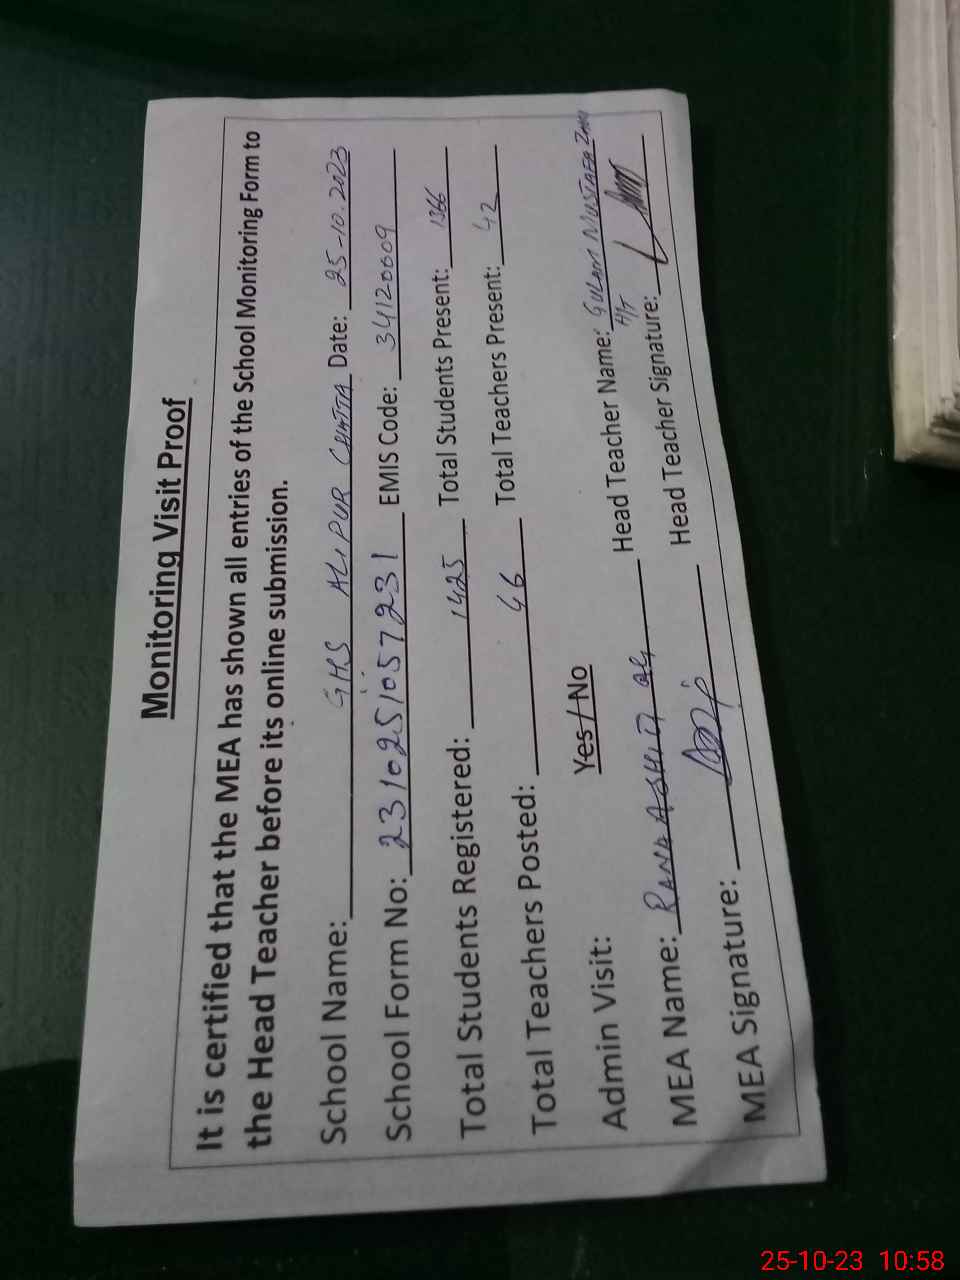 Monitoring Visit Proof
It is certified that the MEA has shown all entries of the School Monitoring Form to
the Head Teacher before its online submission.
School Name: GHS ALIPUR CHATTA Date: 25-10.2023
School Form No: 2310251057231 EMIS Code: 34120009
Total Students Registered: 1425 Total Students Present: 1366
Total Teachers Posted: 46 Total Teachers Present: 42
Admin Visit: Yes / No
Head Teacher Name: GULAM MUSTAFA
H/T
MEA Name: RANA
Head Teacher Signature:
MEA Signature:
25-10-23 10:58